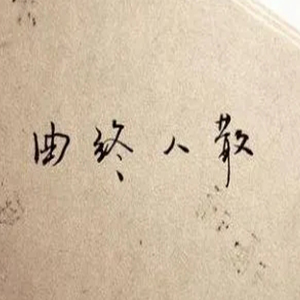 曲终人散